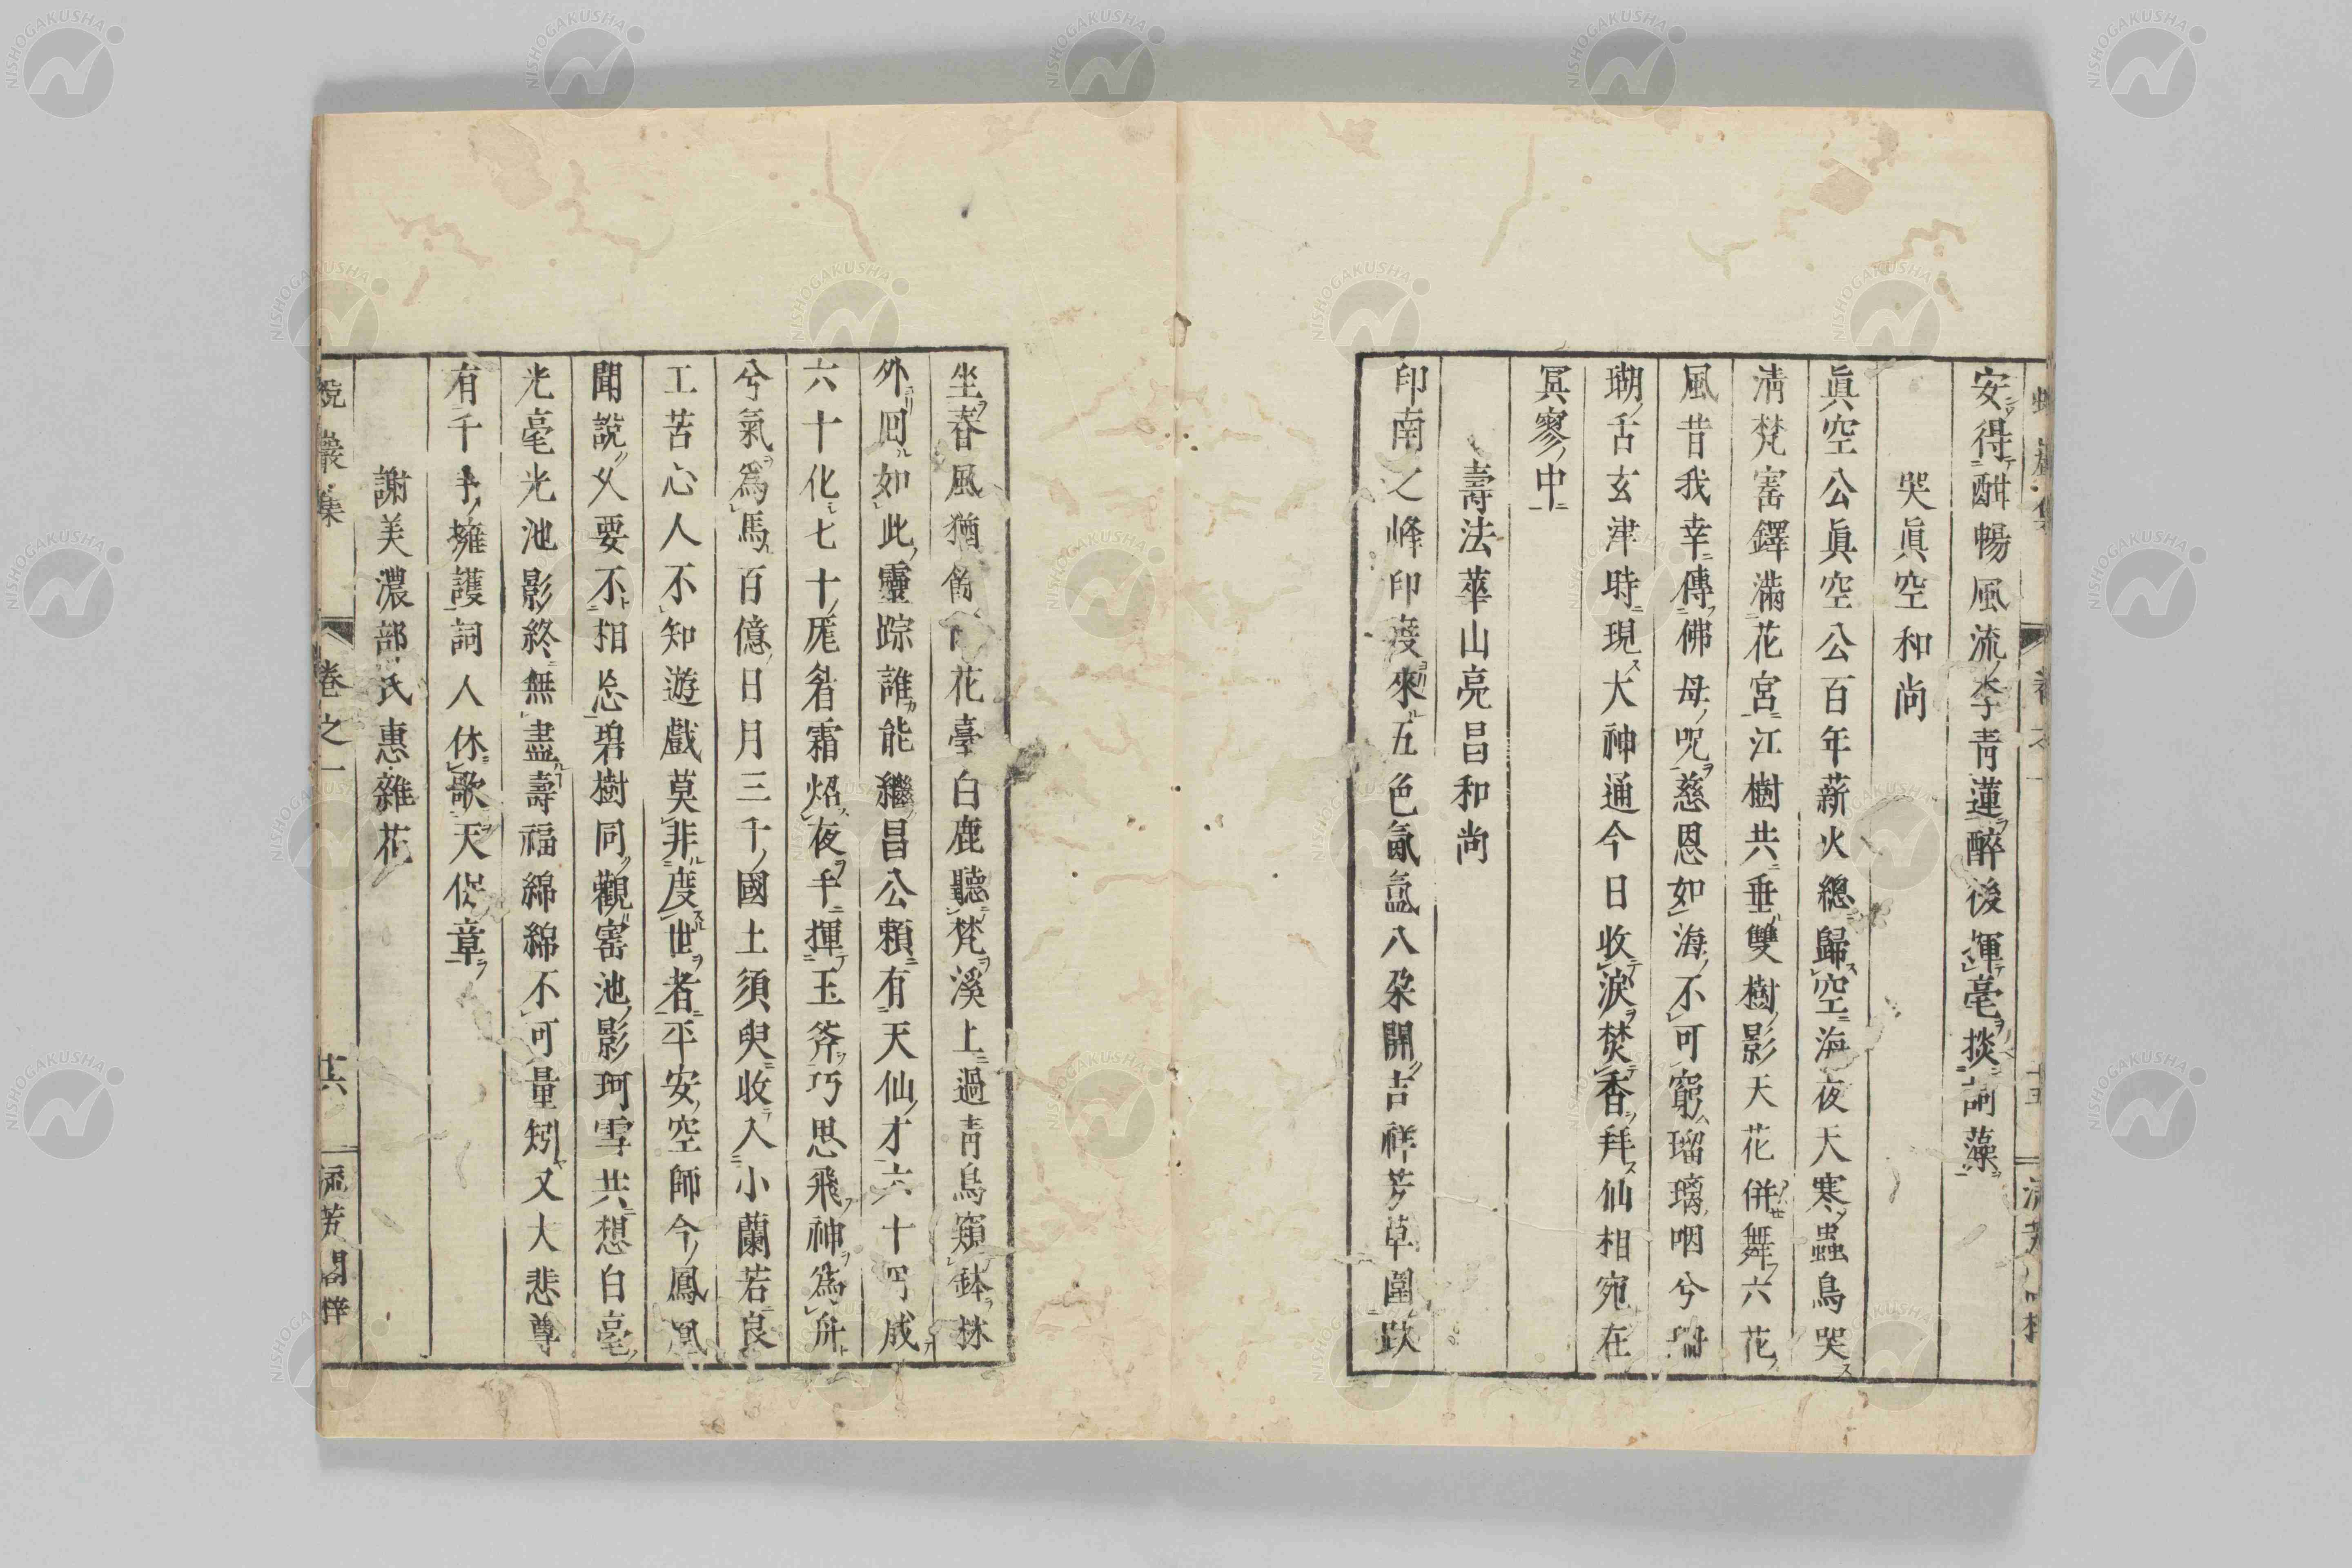 安得酣暢風流李青蓮醉後揮毫掞詞藻
哭眞空和尚
眞空公眞空公百年薪火總歸空海夜天寒蟲鳥哭
淸梵寄鐸滿花宮江樹共垂雙樹影天花併舞六花
風昔我幸傳佛母呪慈恩如海不可窮瑠璃咽兮珊
瑚舌玄津時現大神通今日收淚焚香拜仙相宛在
冥寥中
壽法華山亮昌和尚
印南之峰印度來五色氤氳八朶開吉祥芳草圍趺
坐春風猶 花臺白鹿聽梵溪上過靑鳥窺鉢林
外回如此靈踪誰能繼昌公賴有天仙才六十
六十化七十尨眉霜焰夜手揮玉斧巧思飛神爲舟
兮氣爲馬百億日月三千國土須臾收入小蘭若良
工苦心人不知遊戲莫非度世者平安空師今鳳凰
聞說久要不相忘碧樹同觀寄池影珂雪共想白毫
光毫光池影終無盡壽福綿綿不可量矧又大悲尊
有千手擁護詞人休歌天保章
謝美濃部氏惠雜花
蛻巖集 卷之一 十六 流芳閣梓